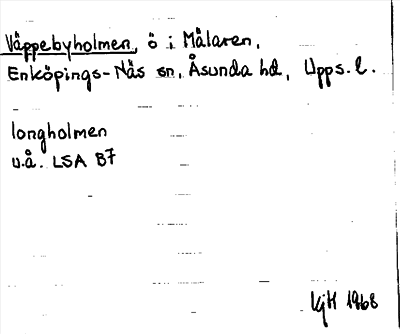 Väppebyholmen, ö i Mälaren,
Enköpings-Näs sn, Åsunda hd, Upps. l.
longholmen
u.å. LSA B7
KjH 1968